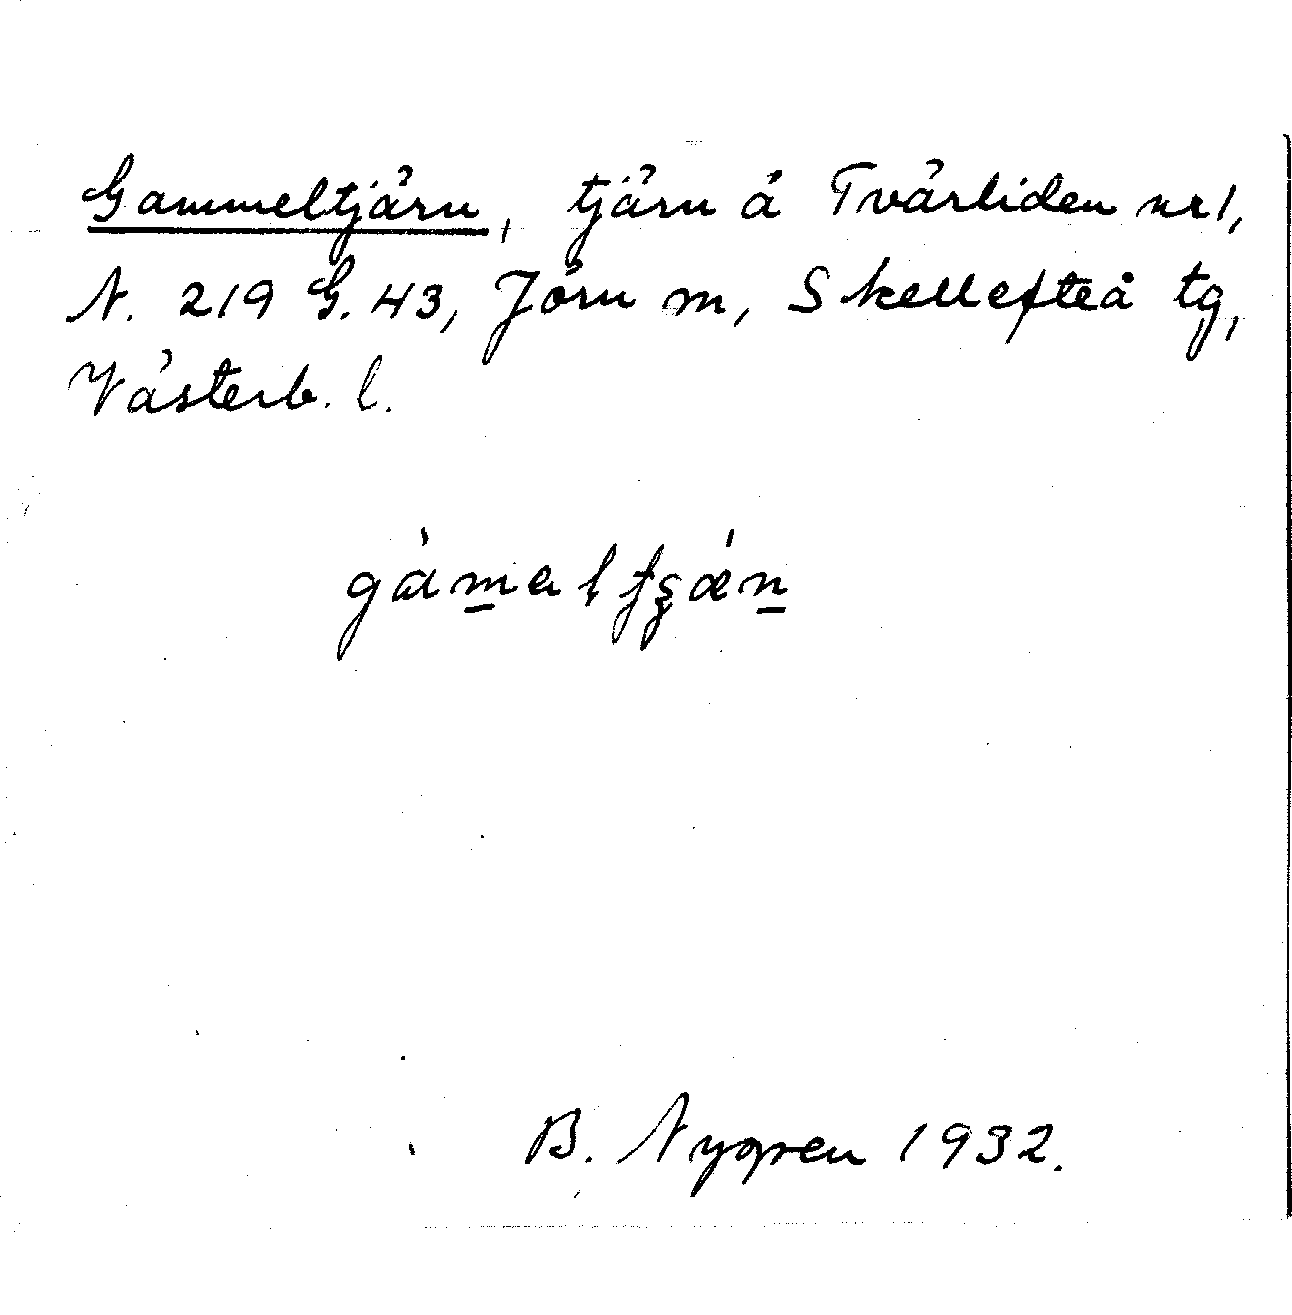 Gammeltjärn, tjärn å Tvärliden nr 1,
N. 219 G. 43, Jörn m, Skellefteå tg,
Västerb. l.
gàm̲alʈʂǽn̲
B. Nygren 1932.